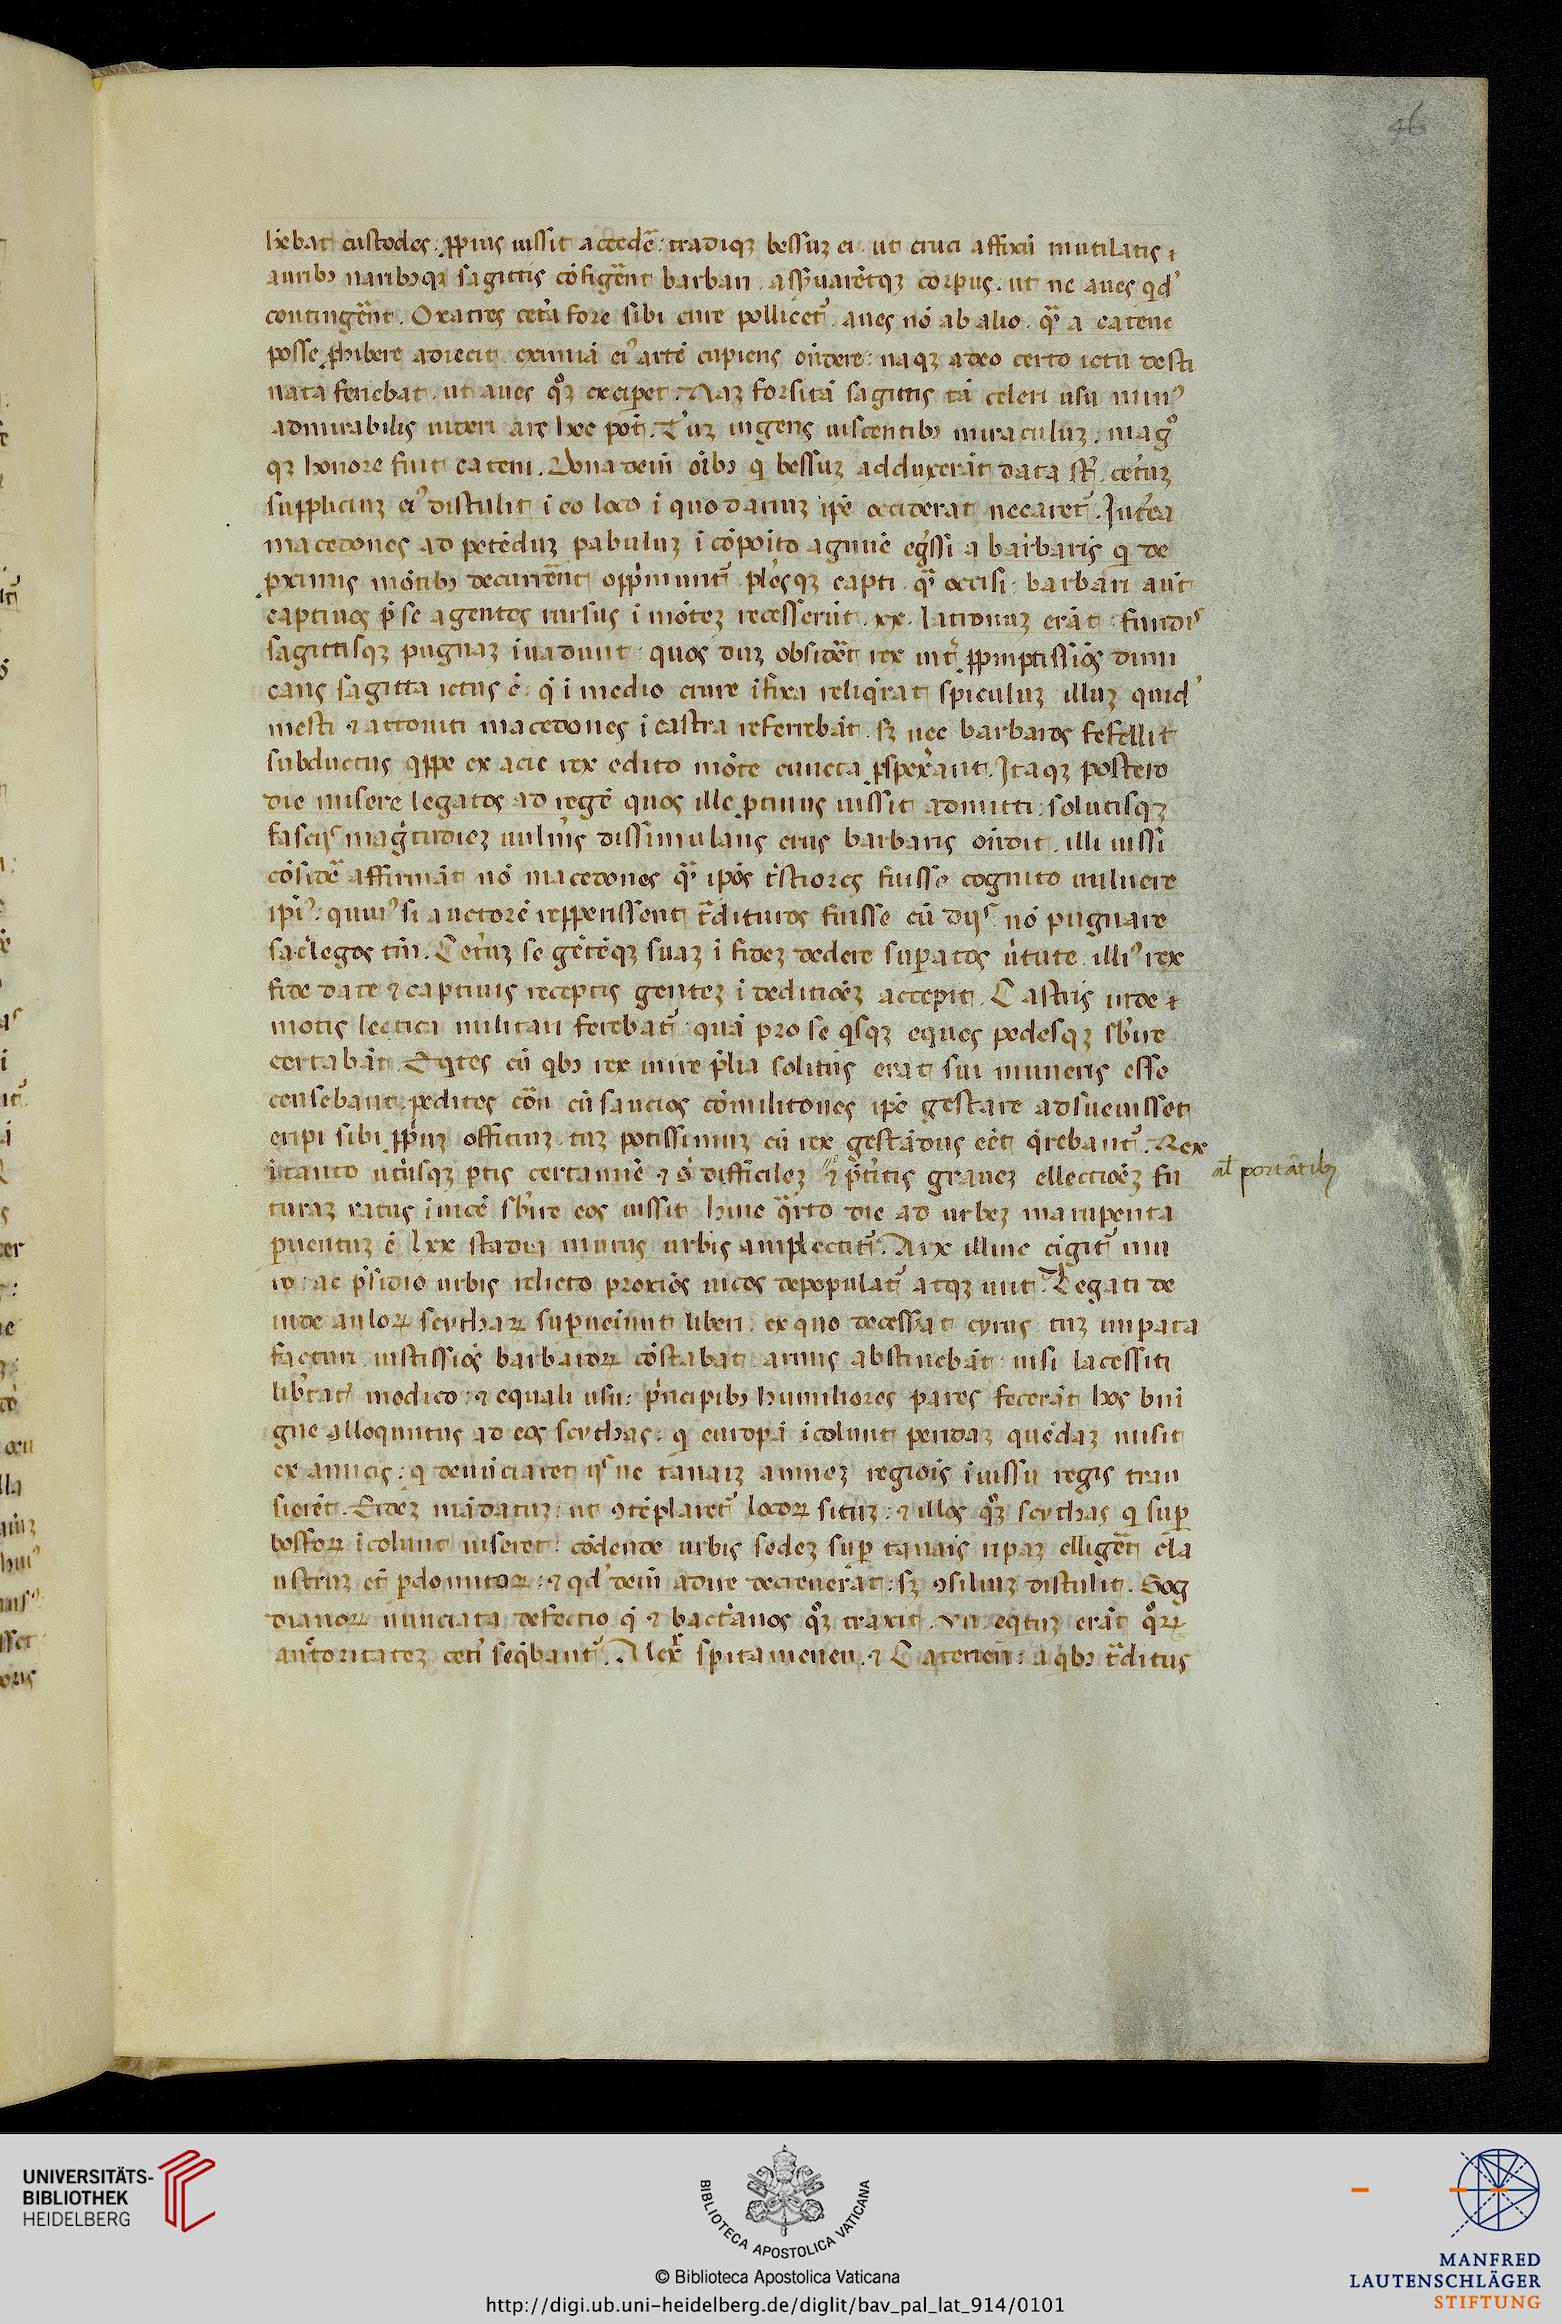 46
hēbat custodes: ꝓpius iussit accedē: tradiqꝫ bessuꝫ ei. ut cruci affixū mutilatis ⁊
auribꝫ naribꝫqꝫ sagittis cōfigēnt barbari. asẜuarētqꝫ corpus. ut ne aues qd'
contingēnt. Oxatres cet'a fore sibi cure pollicet᷑. aues nō ab alio. q̄ a catene
posse ꝓhibere adiecit. eximiā ei' artē cupiens oñdere: naqꝫ adeo certo ictu desti
nata feriebat. ut aues qͦꝫ exciꝑet. Naꝫ forsitā sagittis tā celeri usu min'
admirabilis uideri ars hec pot̄. Tūꝫ ingens uiscentibꝫ miraculuꝫ. magͦ
qꝫ honore fuit cateni. Dona dein̄ oībꝫ qͥ bessuꝫ adduxerāt data sꝶ. cet'uꝫ
suppliciuꝫ ei' distulit ī eo loco ī quo dariuꝫ ip̄e occiderat necaret᷑. Int'ea
macedones ad petēduꝫ pabuluꝫ ī cōpoito agmīe eg̾ssi a barbaris qͥ de
ꝓximis mōtibꝫ decurrēnt opp̾muntᷣ pleͥsqꝫ capti. q̄ occisi: barbari aūt
captiuos p̄ se agentes rursus ī mōteꝫ recesserūt. xx. latronuꝫ erāt: fundis
sagittisqꝫ pugnaꝫ īuadunt: quos duꝫ obsidēt rex int̾ ꝓmptissīos dimi
cans sagitta ictus ē. qͥ ī medio crure īfixa reliqͥrat spiculuꝫ. illuꝫ quid'
mesti ⁊ attoniti macedones ī castra referrebāt. sꝫ nec barbaros fefellit
subductus qͥppe ex acie rex edito mōte cuncta ꝓspexe᷑ant. Itaqꝫ postero
die misere legatos ad regē quos ille ꝓtinus iussit admitti: solutisqꝫ
fascijs mag̾tudieꝫ uuln̾is dissimulans crus barbaris oñdit. illi iussi
cōsidē affirmāt nō macedones q̄ ip̄os t̾stiores fuisse cognito uulnere
ip̄i': quui' si auctorē repperissent t̾dituros fuisse cū dijs nō pugnare
sac̾legos tm̄. Cet'uꝫ se gētēqꝫ suaꝫ ī fideꝫ dedere suꝑatos u̾tute. illi' rex
fide date ⁊ captiuis receptis genteꝫ ī deditioēꝫ accepit. Castris inde ⁊
motis lectica militari ferebat᷑: quā pro se qͥsqꝫ eques pedesqꝫ sb̾ire
certabāt. Eqͥtes cū qͥbꝫ rex inire p̄lia solitus erat sui muneris esse
censebant. pedites cōn̄ cū saucios cōmilitones ip̄e gestare adsueuisset
eripi sibi ꝓp̾uꝫ officiuꝫ. tūꝫ potissimuꝫ cū rex gestādus eēt q̾rebant᷑. Rex
ītanto ut'usqꝫ ꝑtis certamīe ⁊ s̾ difficileꝫ ⁊ p̄t̾itis graueꝫ ellectioēꝫ fu
al' portātibꝫ
turaꝫ ratus īuicē sb̾ire eos iussit. hinc q̾rto die ad urbeꝫ maripenta
ꝑuentuꝫ ē. lxx stadia murus urbis amplectit᷑. Arx illinc cīgit᷑ mu
ro: ac p̄sidio urbis relicto proxīos uicos depopulat᷑ atqꝫ urit. Legati de
inde auloꝝ scythaꝝ suꝑueniunt liberi. ex quo decesẜat cyrus: tuꝫ imꝑata
facturi. iustissīos barbaroꝝ cōstabat: armis abstinebāt: nisi lacessiti
lib̾tat' modico: ⁊ equali usu: p̾ncipibꝫ humiliores pares fecerāt hos bni
gne alloquutus ad eos scythas: qͥ europā īcolunt pendaꝫ quēdaꝫ misit
ex amicis: qͥ denūciaret ijs ne tanaiꝫ amneꝫ regiois īiussu regis tran
sierēt. Eidēꝫ mādatuꝫ: ut ꝯtēplaret᷑ locoꝝ situꝫ: ⁊ illos qͦꝫ scythas qͥ suꝑ
bosforꝝ īcolunt uiseret: cōdende urbis sedeꝫ suꝑ tanais ripaꝫ elligēt cla
ustruꝫ et ꝑdomitoꝝ: ⁊ qd' dein adire decreuerāt: sꝫ ꝯsiliuꝫ distulit. Sog
dianoꝝ nunciata defectio qͥ ⁊ bact̾anos qͦꝫ traxit. Vii eqͥtuꝫ erāt qͦꝝ
aūtoritateꝫ cet'i seqͥbant᷑. Alexͬ spitamenen. ⁊ Catenen: a qͥbꝫ t̾ditus
UNIVERSITÄTS-
BIBLIOTHEK
HEIDELBERG
BIBLIOTECA APOSTOLICA VATICANA
© Biblioteca Apostolica Vaticana
http://digi.ub.uni-heidelberg.de/diglit/bav_pal_lat_914/0101
MANFRED
LAUTENSCHLÄGER
STIFTUNG